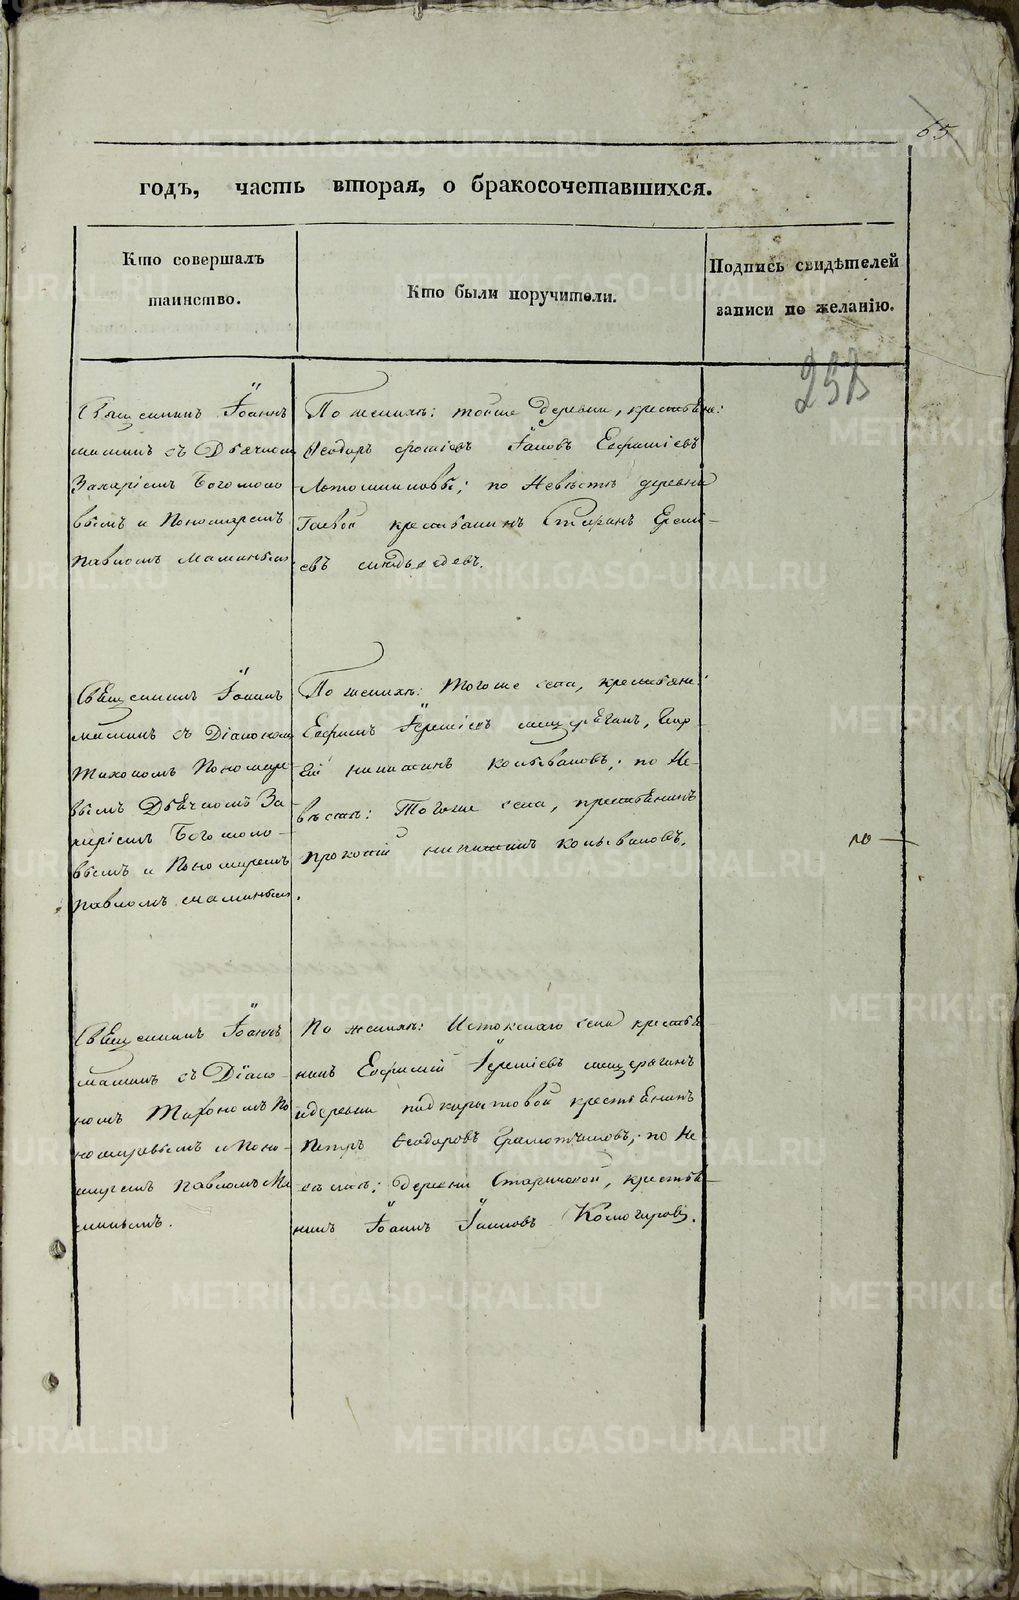 65
годъ, часть вторая, о бракосочетавшихся.
Кто совершалъ
таинство.
Кто были поручители.
Подпись свидѣтелей
записи по желанію.
Священникъ Іоаннъ
маминъ съ Дьячкомъ
Захаріемъ Богомоло-
вымъ и Пономаремъ
Павломъ маминымъ
По женихѣ: тойже деревни, крестьяне:
Ѳеодоръ Іановъ Евфиміевъ
по Невѣстѣ деревни
крестьянинъ
евъ
Священникъ Іоаннъ
маминъ съ Діакономъ
Тихономъ Пономаре-
вымъ Дьячкомъ За-
харіемъ Богомоло-
вымъ и Пономаремъ
Павломъ маминымъ.
По женихѣ: Тогоже села, крестьяне:
Евфимъ Іереміевъ мещерягинъ,
колывановъ; по Не-
вѣстѣ: Тогоже села, крестьянинъ
прокопій колывановъ.
10
Священникъ Іоаннъ
маминъ съ Діако-
номъ Тихономъ По
номаревымъ и Поно-
маремъ Павломъ Ма
минымъ.
По женихѣ: Истокскаго села крестья
нинъ Евфимій Іереміевъ мещерягинъ
и деревни крестьянинъ
Петръ Ѳеодоровъ по Не
вѣстѣ: деревни крестья-
нинъ Іоаннъ Іанновъ Комогоровъ.
METRIKI.GASO-URAL.RU